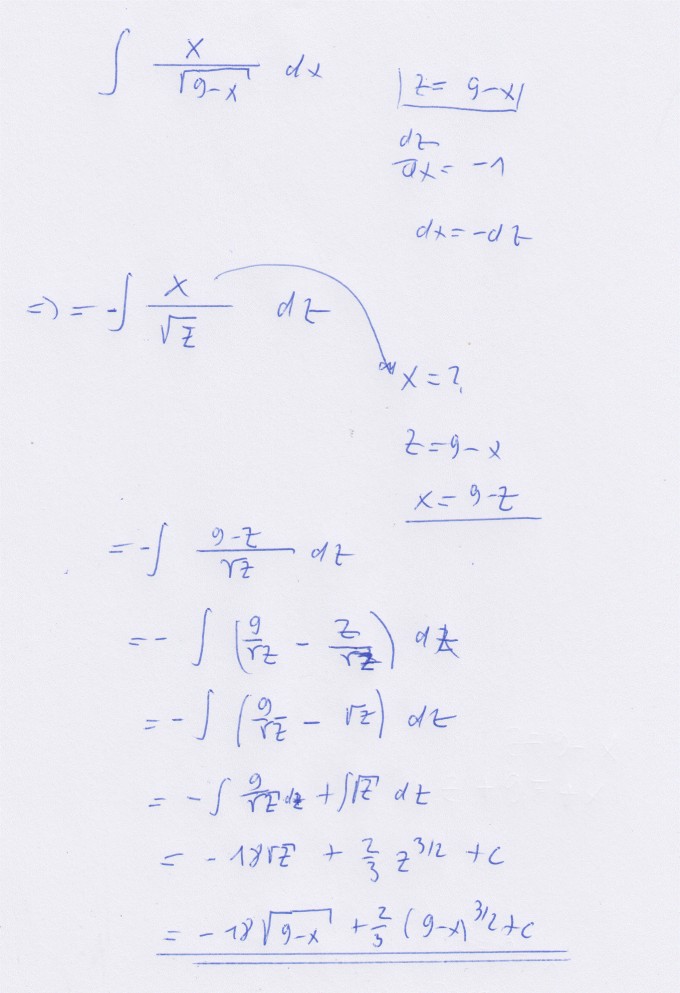 ∫ x/√(9-x) dx
|z = 9-x|
dz/dx = -1
dx = -dz
=> = -∫ x/√z dz
x = ?
z = 9-x
x = 9-z
= -∫ (9-z)/√z dz
= - ∫ (9/√z - z/√z) dz
= - ∫ (9/√z - √z) dz
= - ∫ 9/√z dz + ∫√z dz
= - 18√z + 2/3 z^3/2 + c
= - 18√(9-x) + 2/3 (9-x)^3/2 + c